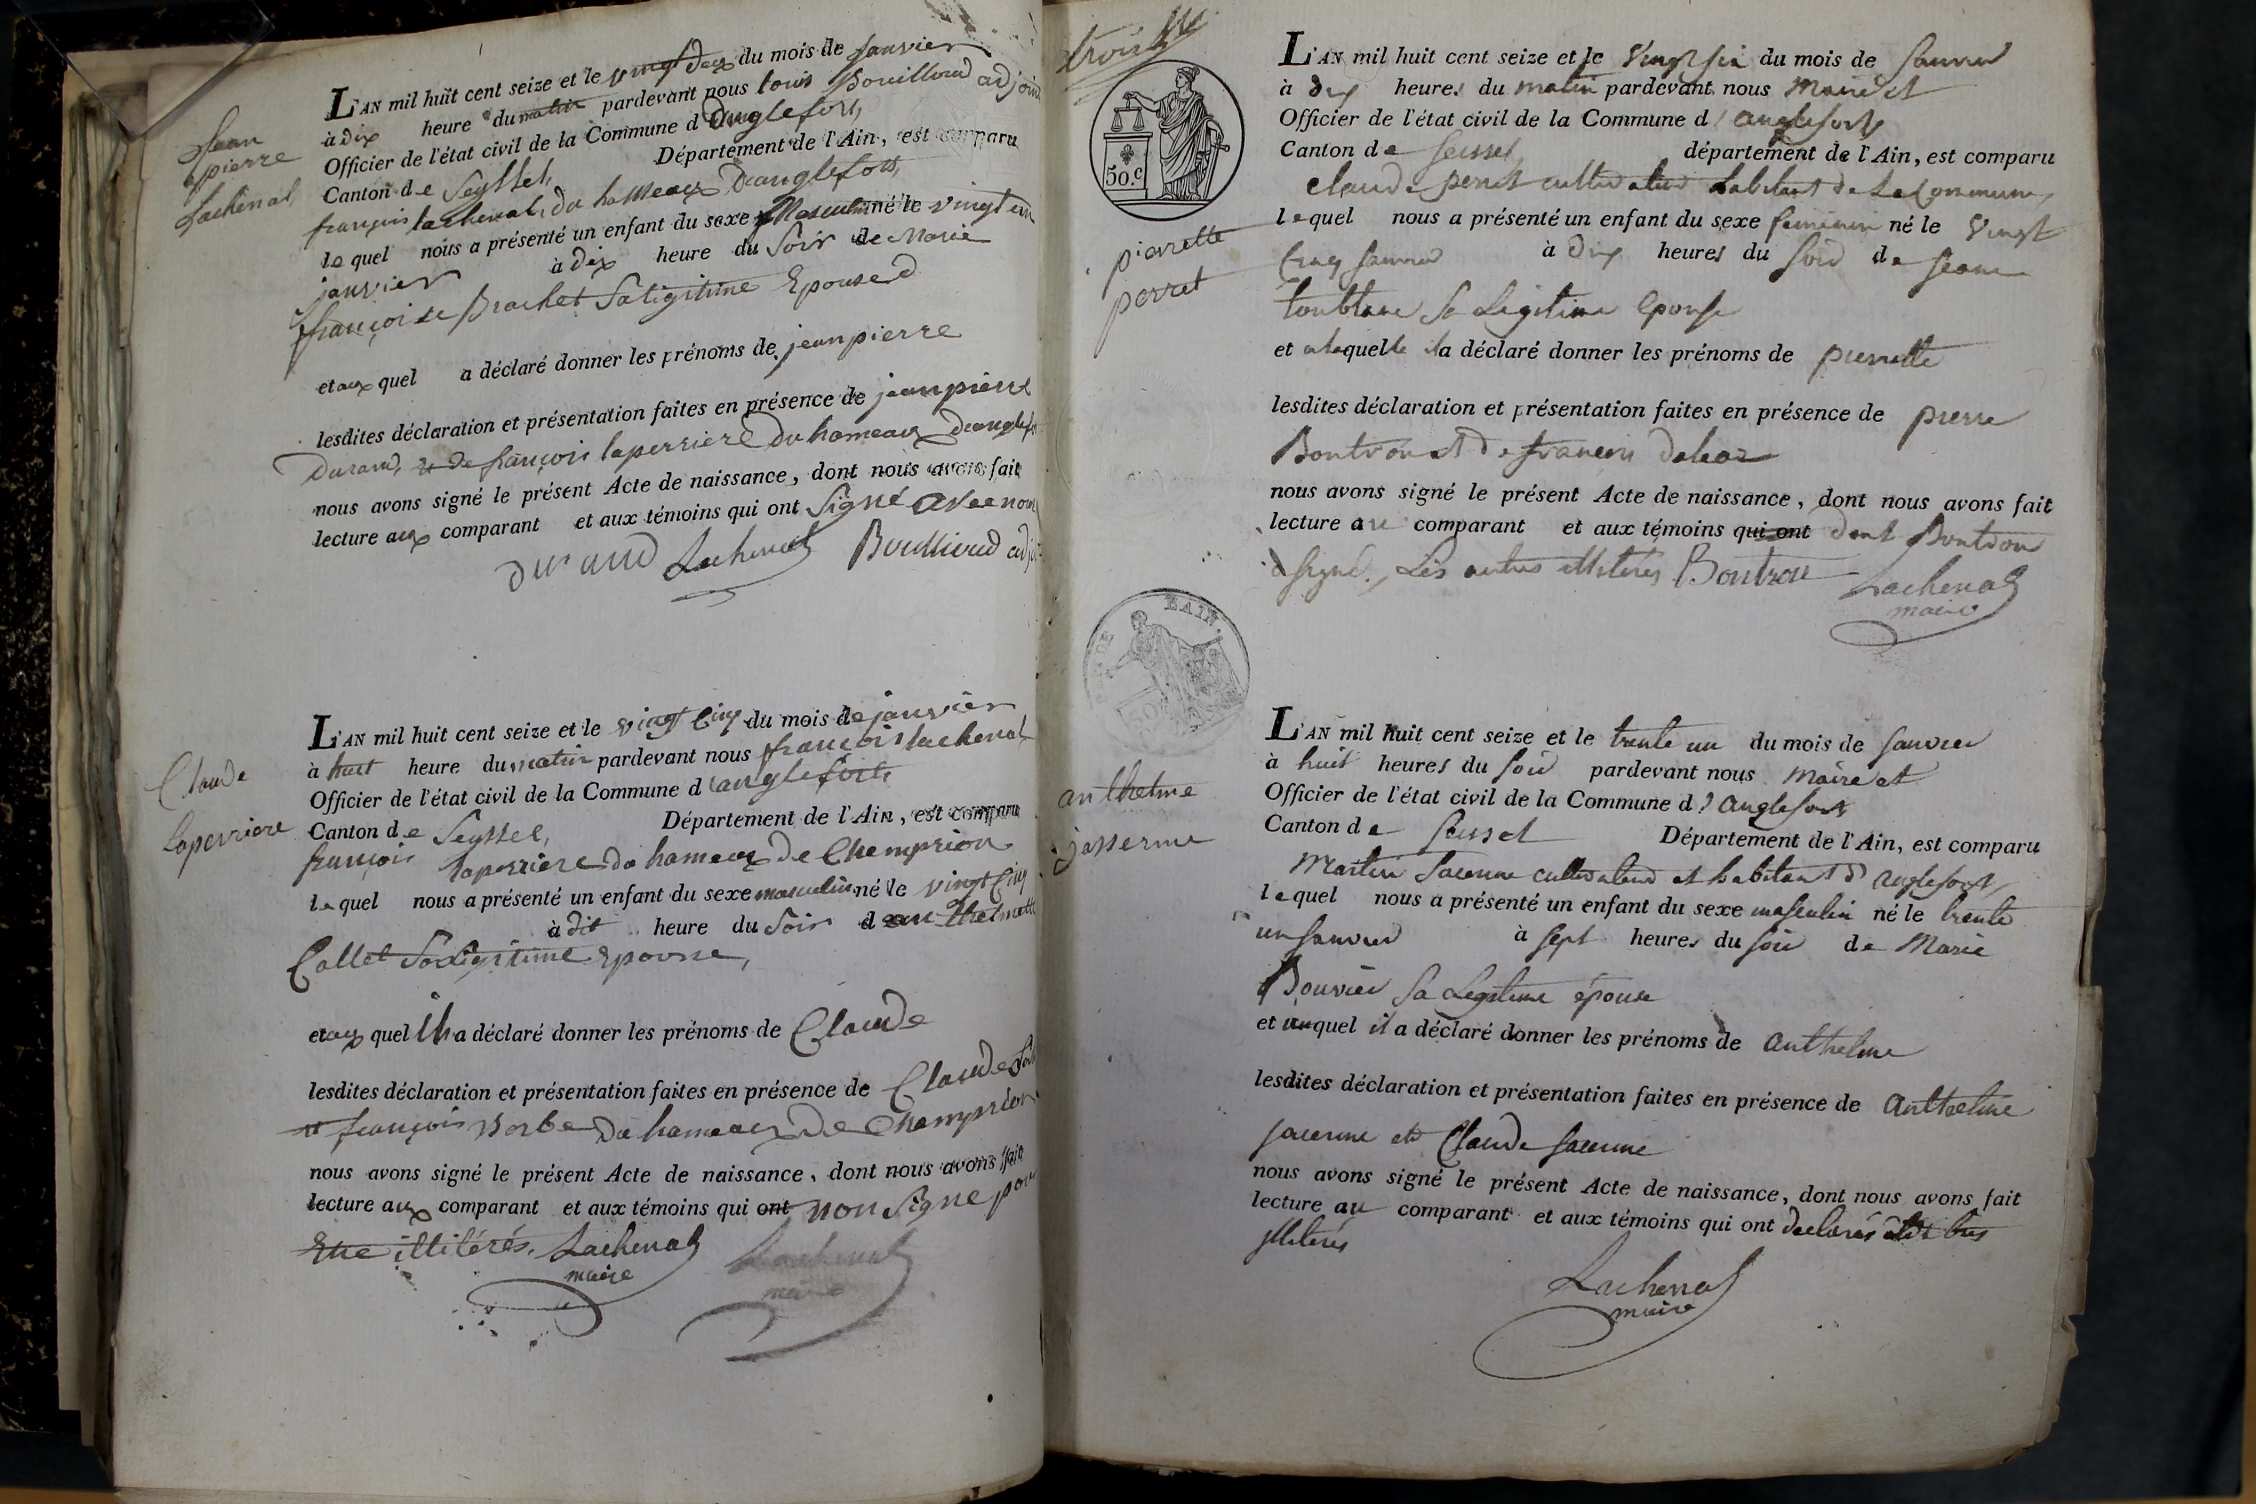 Jean
pierre
Lachenal
L'AN mil huit cent seize et le vingt deux du mois de janvier
à dix heure du matin pardevant nous louis Bouilloud adjoint
Officier de l'état civil de la Commune d'anglefort,
Canton de Seyssel, Département de l'Ain, est comparu
françois lachenal, du hameaux d'anglefort,
lequel nous a présenté un enfant du sexe Masculin né le vingt un
janvier à dix heure du soir de Marie
françoise Brachet Saligitime Epouse
et aux quel a déclaré donner les prénoms de jean pierre
lesdites déclaration et présentation faites en présence de jean pierre
Durand, et de françois laperriere du hameaux d'anglefort
nous avons signé le présent Acte de naissance, dont nous avons fait
lecture aux comparant et aux témoins qui ont Signé avec nous
durand Lachenal Bouilloud adj
Claude
laperriere
L'AN mil huit cent seize et le vingt cinq du mois de janvier
à huit heure du matin pardevant nous françois lachenal
Officier de l'état civil de la Commune d'anglefort
Canton de Seyssel, Département de l'Ain, est comparu
françois laperriere du hameaux de Champrion
lequel nous a présenté un enfant du sexe masculin né le vingt Cinq
à dit heure du Soir d'anthelmette
Collet Saligitime Epouse,
et aux quel ilh a déclaré donner les prénoms de Claude
lesdites déclaration et présentation faites en présence de Claude
et françois Borbe du hameaux de Champrion
nous avons signé le présent Acte de naissance, dont nous avons fait
lecture aux comparant et aux témoins qui ont non Signe pour
Etre illitérés. Lachenal
maire
Lachenal
maire
trois
50.c
pierrette
perret
L'AN mil huit cent seize et le vingt six du mois de Janvier
à dix heures du matin pardevant nous Maire et
Officier de l'état civil de la Commune d'anglefort
Canton de Seissel département de l'Ain, est comparu
Claude perret cultivateur habitant de la Commune,
lequel nous a présenté un enfant du sexe feminin né le Vingt
Cinq Janvier à dix heures du soir de Jeane
Sa Legitime Epouse
et a laquelle il a déclaré donner les prénoms de pierrette
lesdites déclaration et présentation faites en présence de pierre
Bontron et de francois
nous avons signé le présent Acte de naissance, dont nous avons fait
lecture au comparant et aux témoins qui ont dont Bontron
a signé, Les autres illiterés Bontron Lachenal
maire
anthelme
jasserme
L'AN mil huit cent seize et le trente un du mois de Janvier
à huit heures du soir pardevant nous Maire et
Officier de l'état civil de la Commune d'anglefort
Canton de Seissel Département de l'Ain, est comparu
Martin Jacerme cultivateur et habitant d'anglefort,
lequel nous a présenté un enfant du sexe masculin né le trente
un Janvier à sept heures du soir de Marie
Bouvier Sa Legitime épouse
et auquel il a déclaré donner les prénoms de anthelme
lesdites déclaration et présentation faites en présence de anthelme
jacerme et Claude Jacerme
nous avons signé le présent Acte de naissance, dont nous avons fait
lecture au comparant et aux témoins qui ont declarés
illiterés
Lachenal
maire